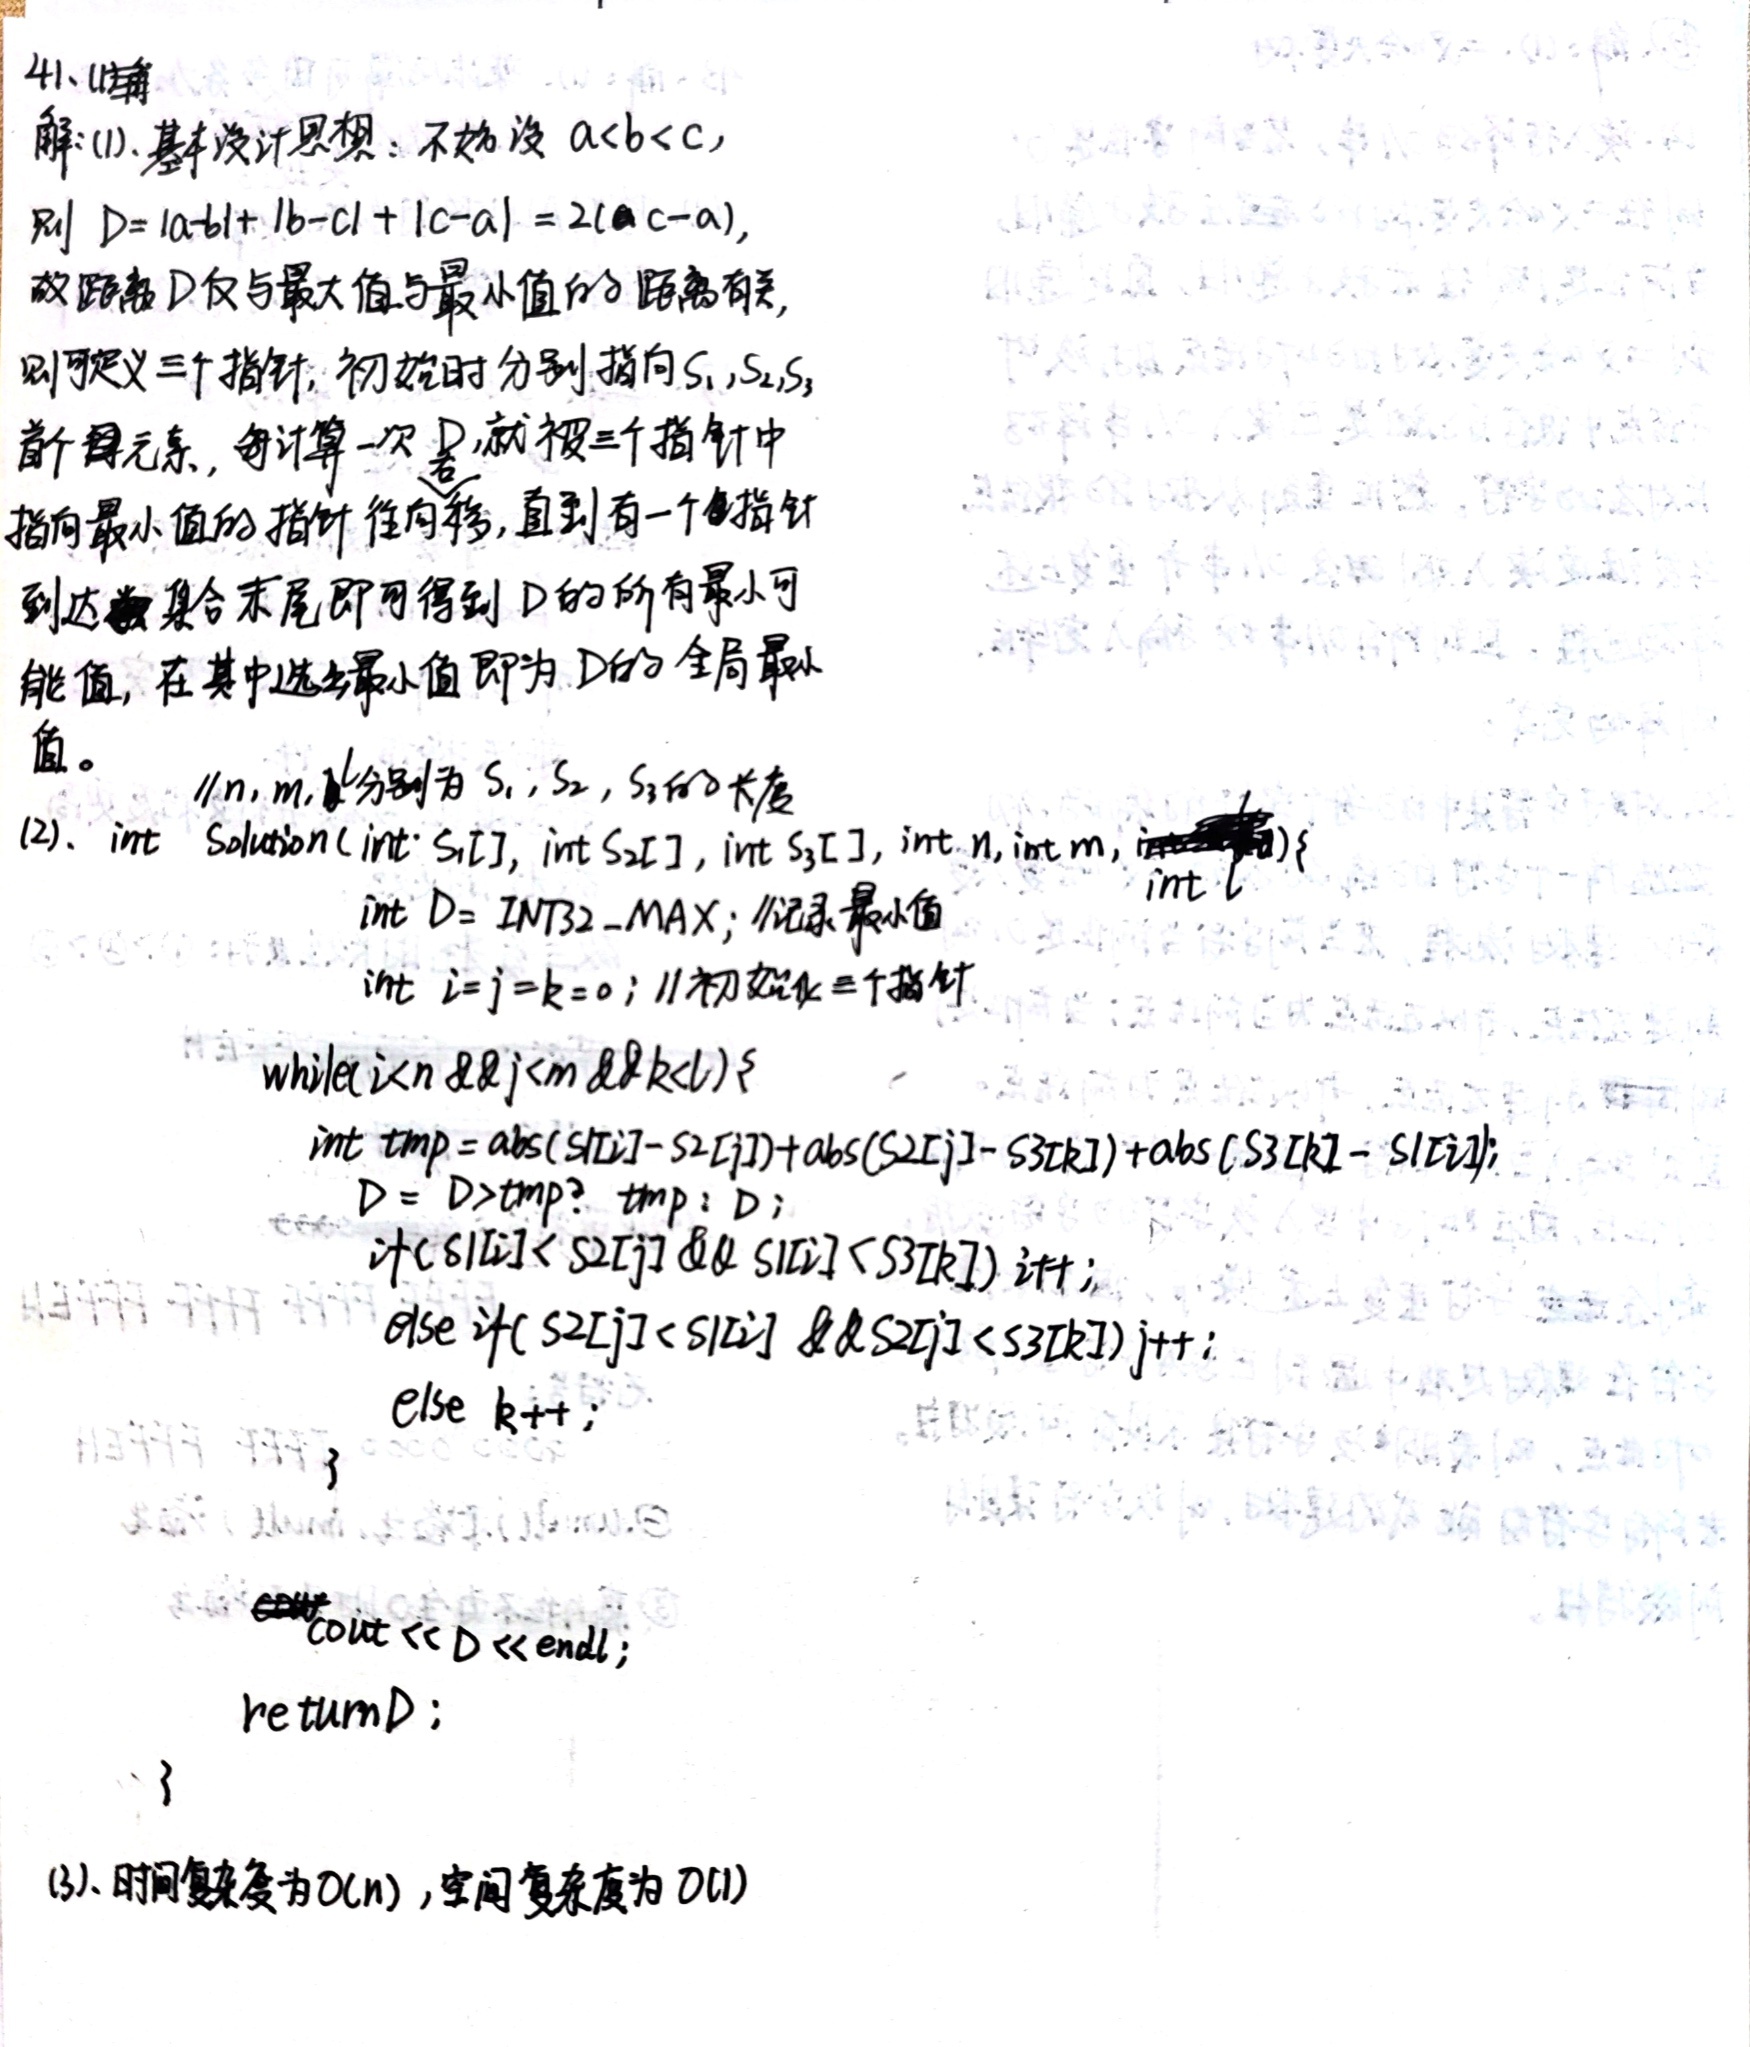 41、
解:(1)、基本设计思想：不妨设 a<b<c,
则 D=|a-b|+|b-c|+|c-a|=2(c-a),
故距离D仅与最大值与最小值的距离有关,
则可定义三个指针, 初始时分别指向S₁,S₂,S₃
首个元素, 每计算一次D,就被三个指针中
指向最小值的指针往向右移,直到有一个指针
到达集合末尾即可得到D的所有最小可
能值, 在其中选出最小值即为D的全局最小
值。
//n, m, l分别为 S₁, S₂, S₃的长度
(2)、int Solution(int S1[], int S2[], int S3[], int n, int m, int l){
int D= INT32_MAX; //记录最小值
int i=j=k=0; //初始化三个指针
while(i<n && j<m && k<l){
int tmp=abs(S1[i]-S2[j])+abs(S2[j]-S3[k])+abs(S3[k]-S1[i]);
D= D>tmp? tmp: D;
if(S1[i]<S2[j] && S1[i]<S3[k]) i++;
else if(S2[j]<S1[i] && S2[j]<S3[k]) j++;
else k++;
}
cout<<D<<endl;
return D;
}
(3)、时间复杂度为O(n), 空间复杂度为O(1)